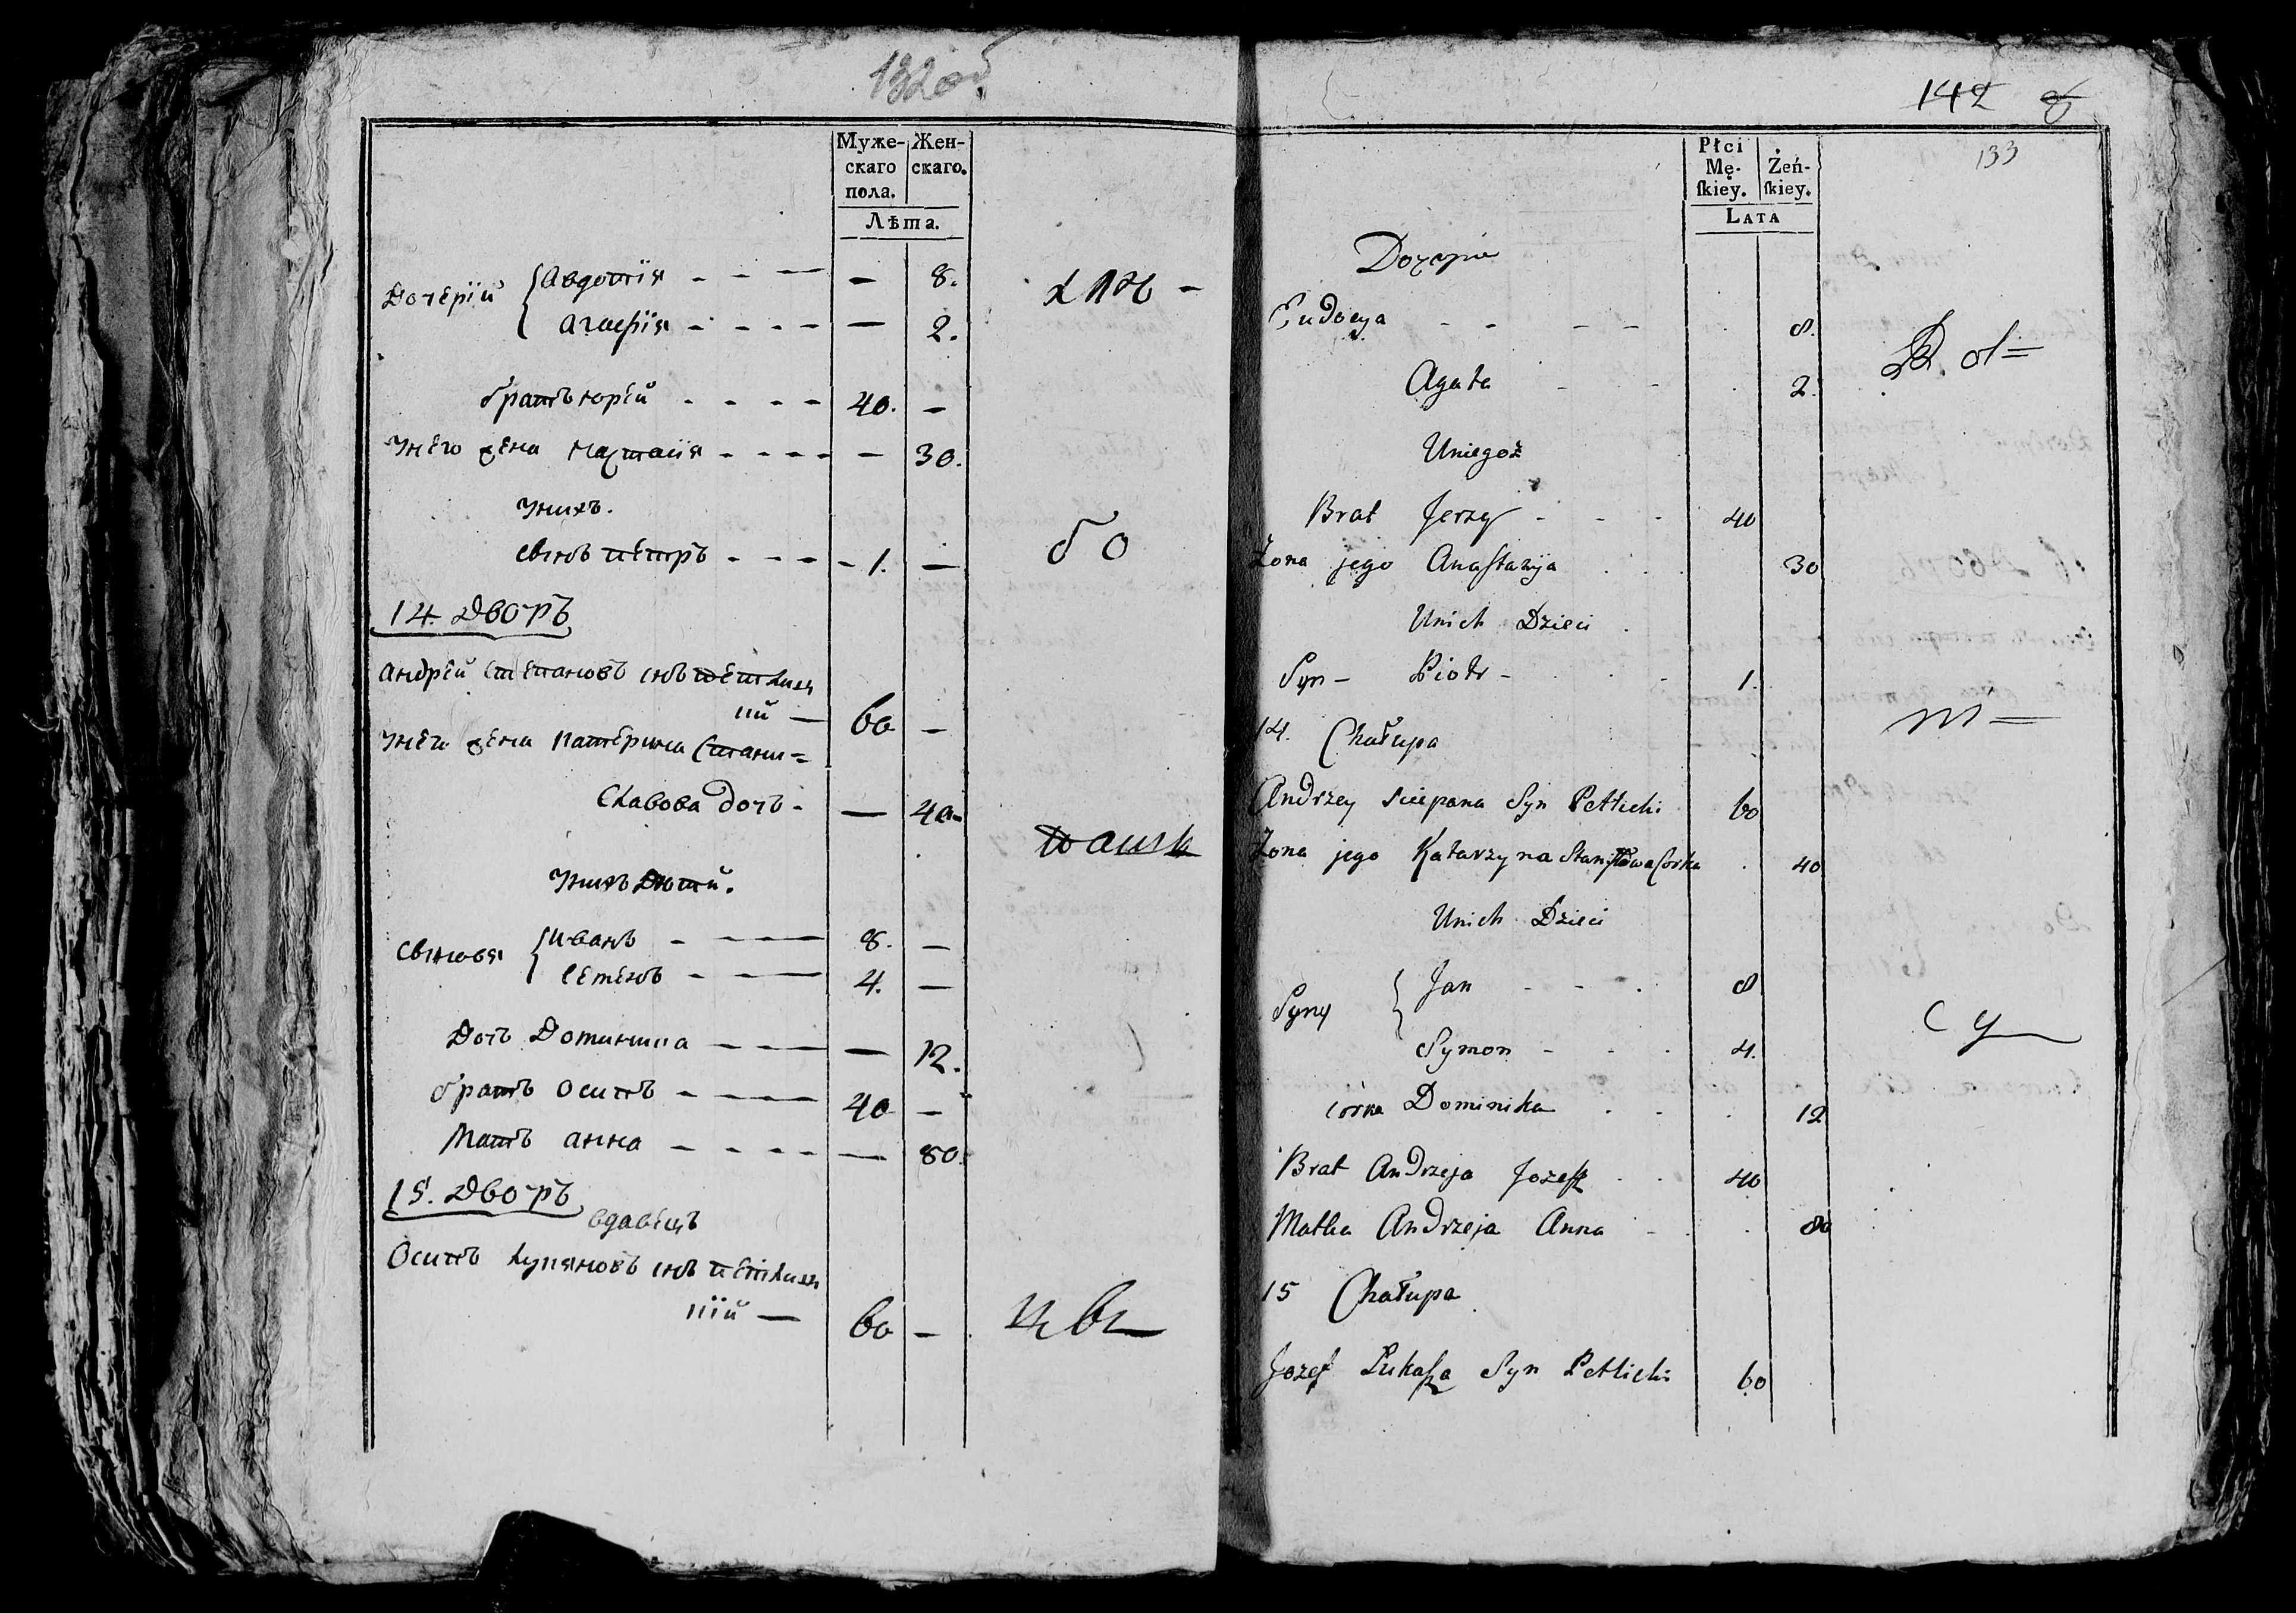 132 об.
Муже- Жен-
скаго скаго.
пола.
Лѣта.
Дочерїи { Авдотїя - - - — 8. для -
Агафїя - - - - — 2.
братъ юрїй - - - - 40. —
Унего жена Настасїя - - - - — 30.
Унихъ.
сынъ петръ - - - - 1. — бо
14. Дворъ
Андрей степановъ снъ петлиц
кий — 60 —
Унего жена Катерина Стани=
славова дочь - — 40
Унихъ Дети.
сыновя { Иванъ - - - 8. —
Семенъ - - - 4. —
Дочь Доминика - - - — 12.
братъ осипъ - - - 40 —
Мать анна - - - - — 80.
15. Дворъ
вдавецъ
Осипъ лукяновъ снъ петлиц
кїй — 60 —
142
133
Płci
Mę- Żeń-
skiey. skiey.
LATA
Eudocya - - - - 8.
Agata - - 2.
Uniegoż
Brat Jerzy - - - 40
Żona jego Anastazyja 30
Unich Dzieci
Syn - Piotr - - 1.
14. Chałupa
Andrzey Sciepana Syn Petlicki 60
Żona jego Katarzyna Stanisława Corka 40
Unich Dzieci
Syny { Jan - - 8
Symon - - 4.
córka Dominika 12
Brat Andrzeja Jozef 40
Matka Andrzeja Anna 80
15 Chałupa
Jozef Łukasza Syn Petlicki 60